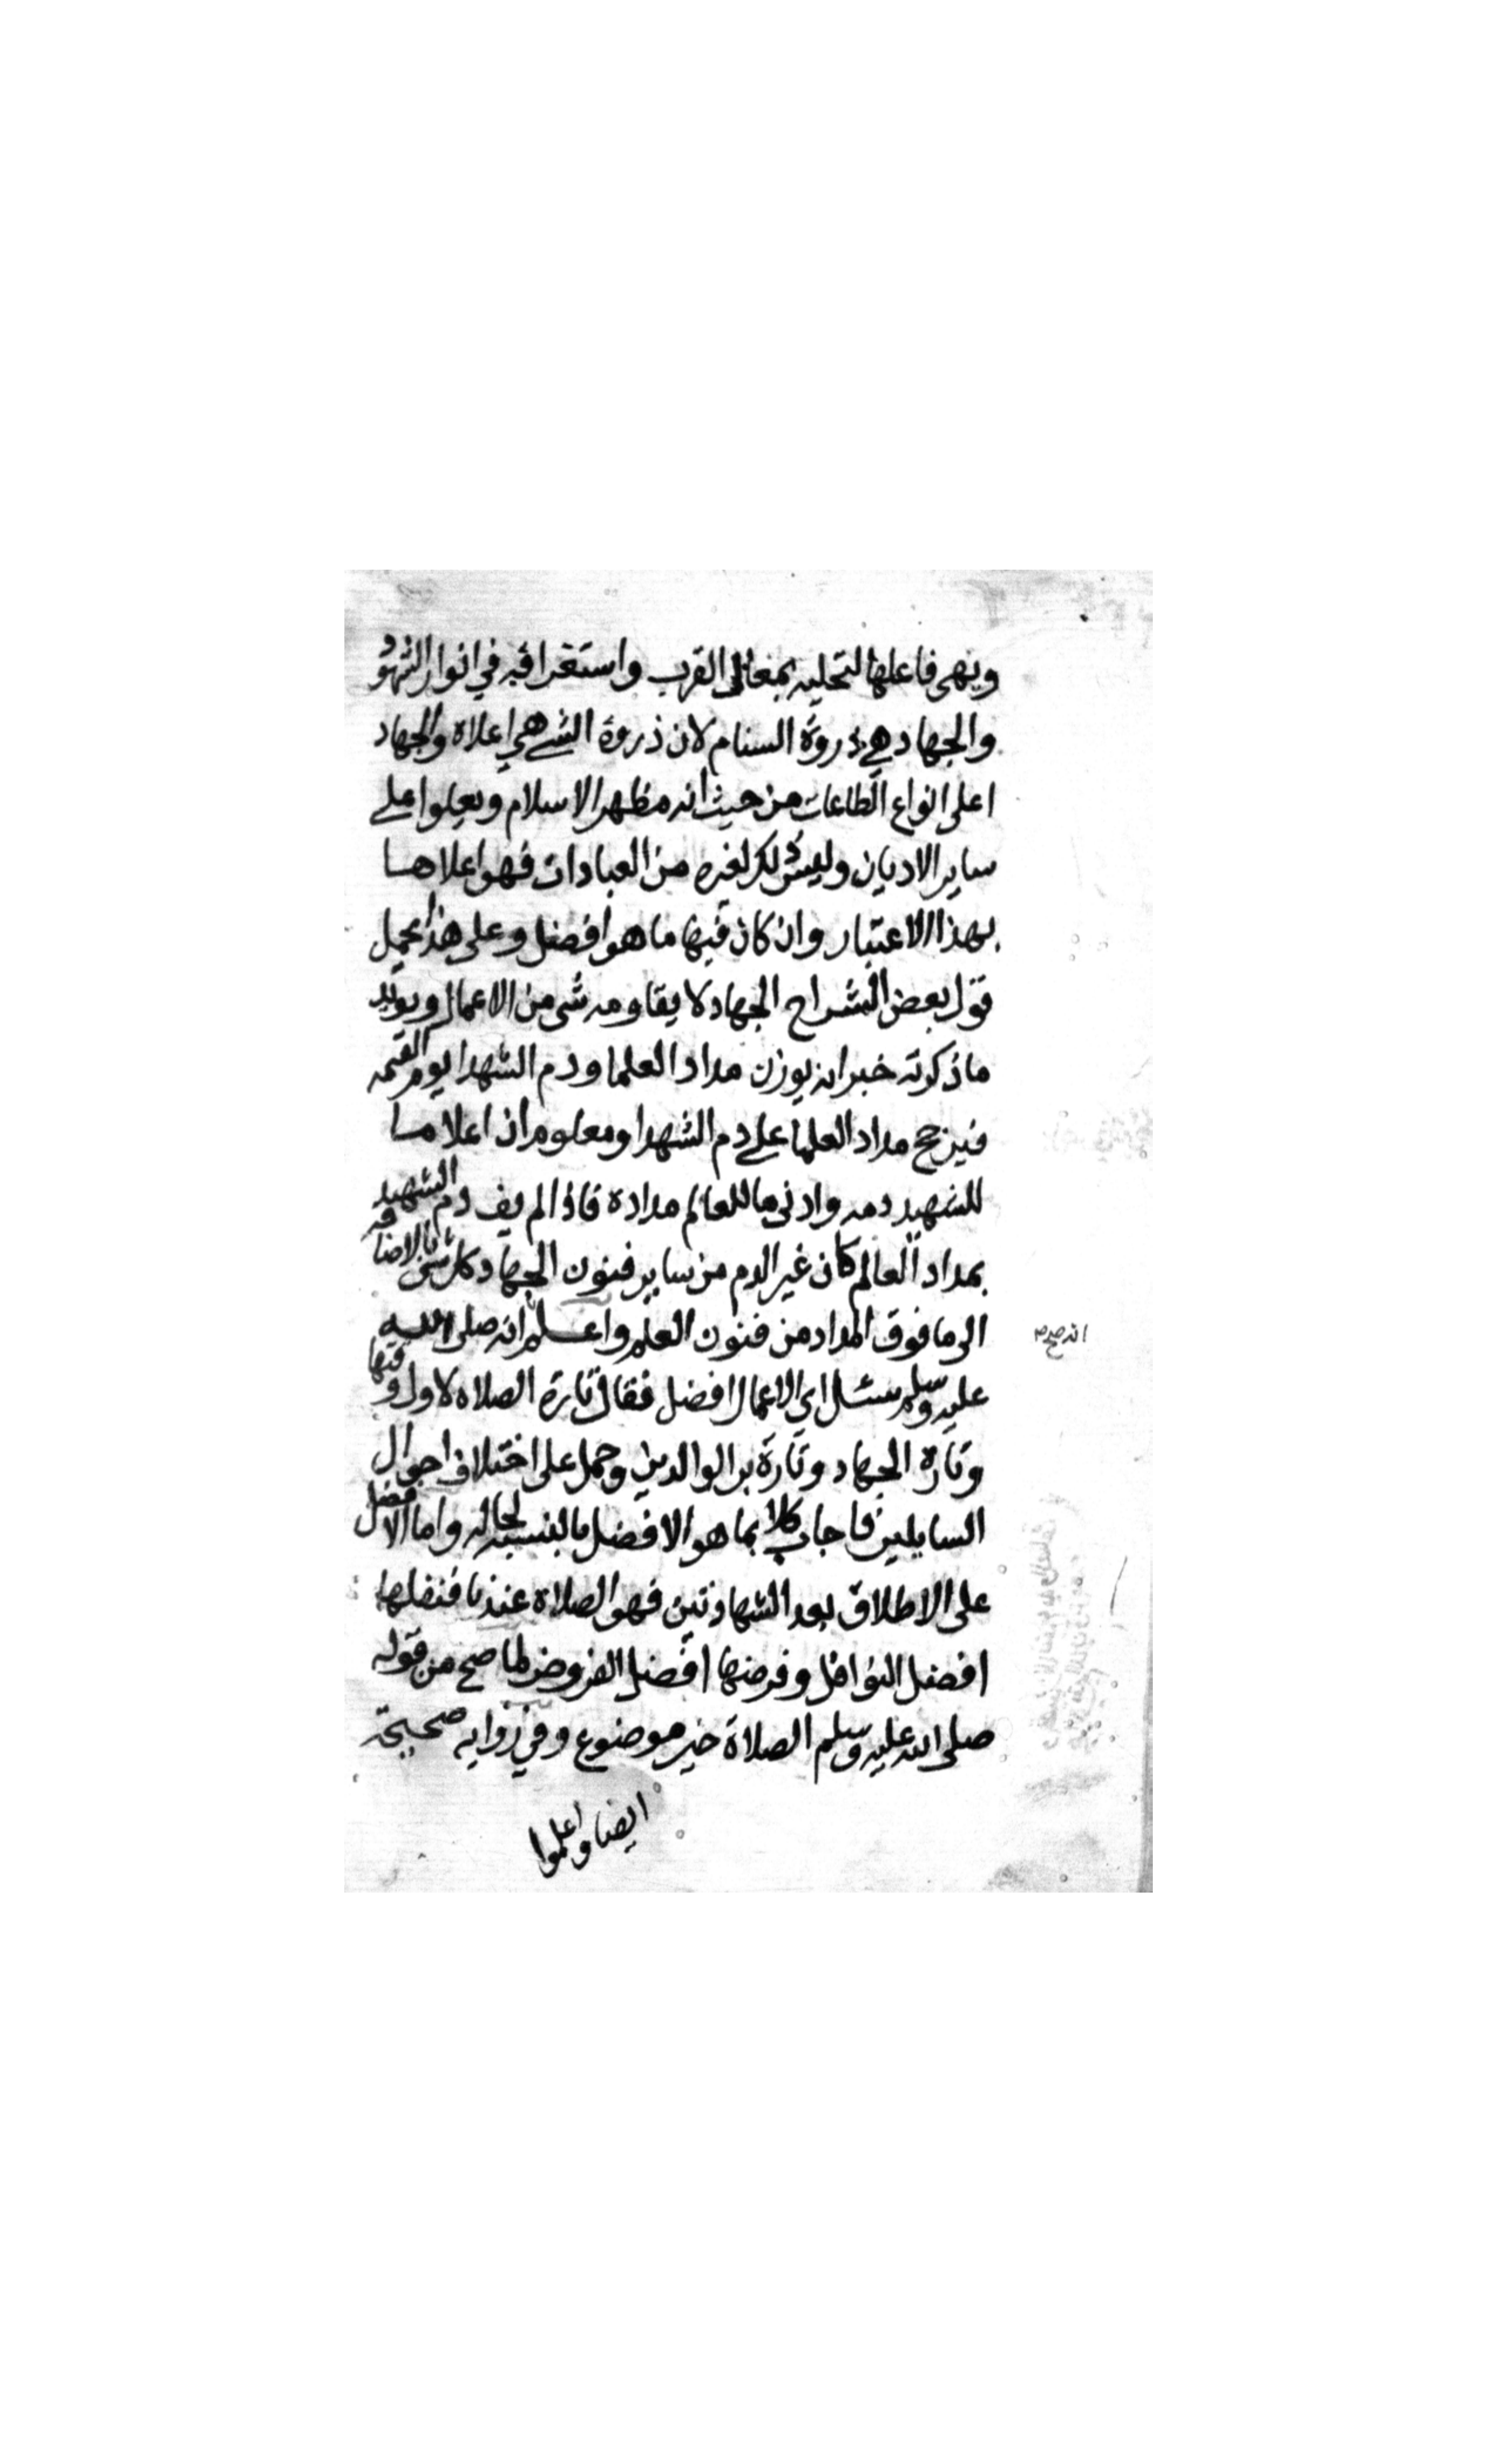 وينهى فاعلها لتحليه بمعالى القرب واستغراقه في انوار الشهود
والجهاد هي ذروة السنام لان ذروة الشي هي اعلاه والجهاد
اعلى انواع الطاعات من حيث انه مظهر الاسلام ويعلوا على
ساير الاديان وليس ذلك لغيره من العبادات فهو اعلاها
بهذا الاعتبار وان كان فيها ما هو افضل وعلى هذا يحمل
قول بعض الشراح الجهاد لا يقاومه شي من الاعمال ويويد
ما ذكرته خبر انه يوزن مداد العلما ودم الشهدا يوم القيمه
فيرجح مداد العلما على دم الشهدا ومعلوم ان اعلا ما
للشهيد دمه وادنى ما للعالم مداده فاذا لم يف دم الشهيد
بمداد العالم كان غير الدم من ساير فنون الجهاد كلا شي بالاضافه
الى ما فوق المداد من فنون العلم واعلم انه صلى الله
عليه وسلم سئل اي الاعمال افضل فقال تارة الصلاه لاول وقتها
وتارة الجهاد وتارة بر الوالدين وحمل على اختلاف احوال
السايلين فاجاب كلا بما هو الافضل بالنسبة لحاله واما الافضل
على الاطلاق بعد الشهادتين فهو الصلاة عندنا فنفلها
افضل النوافل وفرضها افضل الفروض لما صح من قوله
صلى الله عليه وسلم الصلاة خير موضوع وفي رواية صحيحة
ايضا واعلموا
انه صح